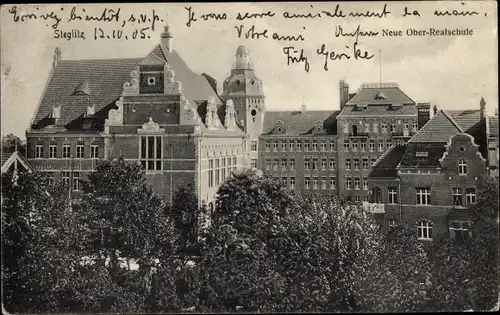 Écrivez bientôt, s.v.p.
Je vous serre amicalement la main,
Steglitz 13.10.05.
Votre ami
Fritz Gericke
Neue Ober-Realschule